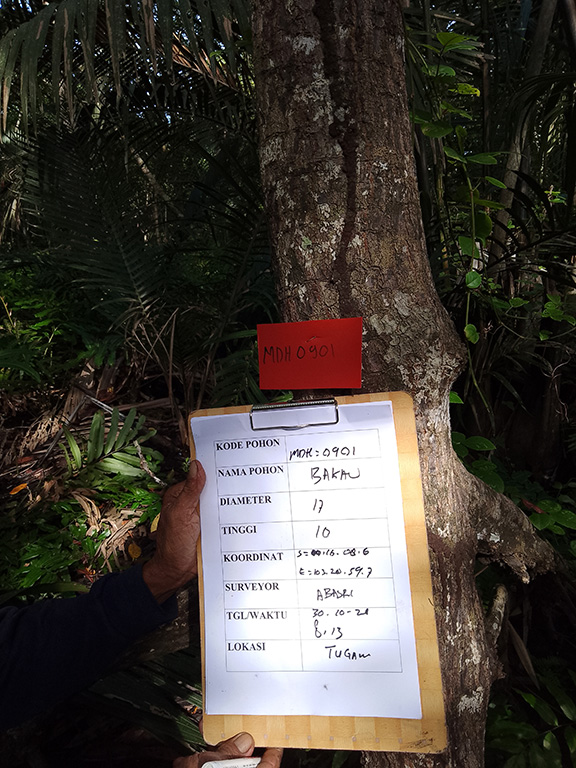 MDH 0901
KODE POHON MDH = 0901
NAMA POHON BAKAU
DIAMETER 17
TINGGI 10
KOORDINAT S = 00.16.08.6
E = 103.20.59.7
SURVEYOR ABADRI
TGL/WAKTU 30.10-21
8.13
LOKASI TUGAU